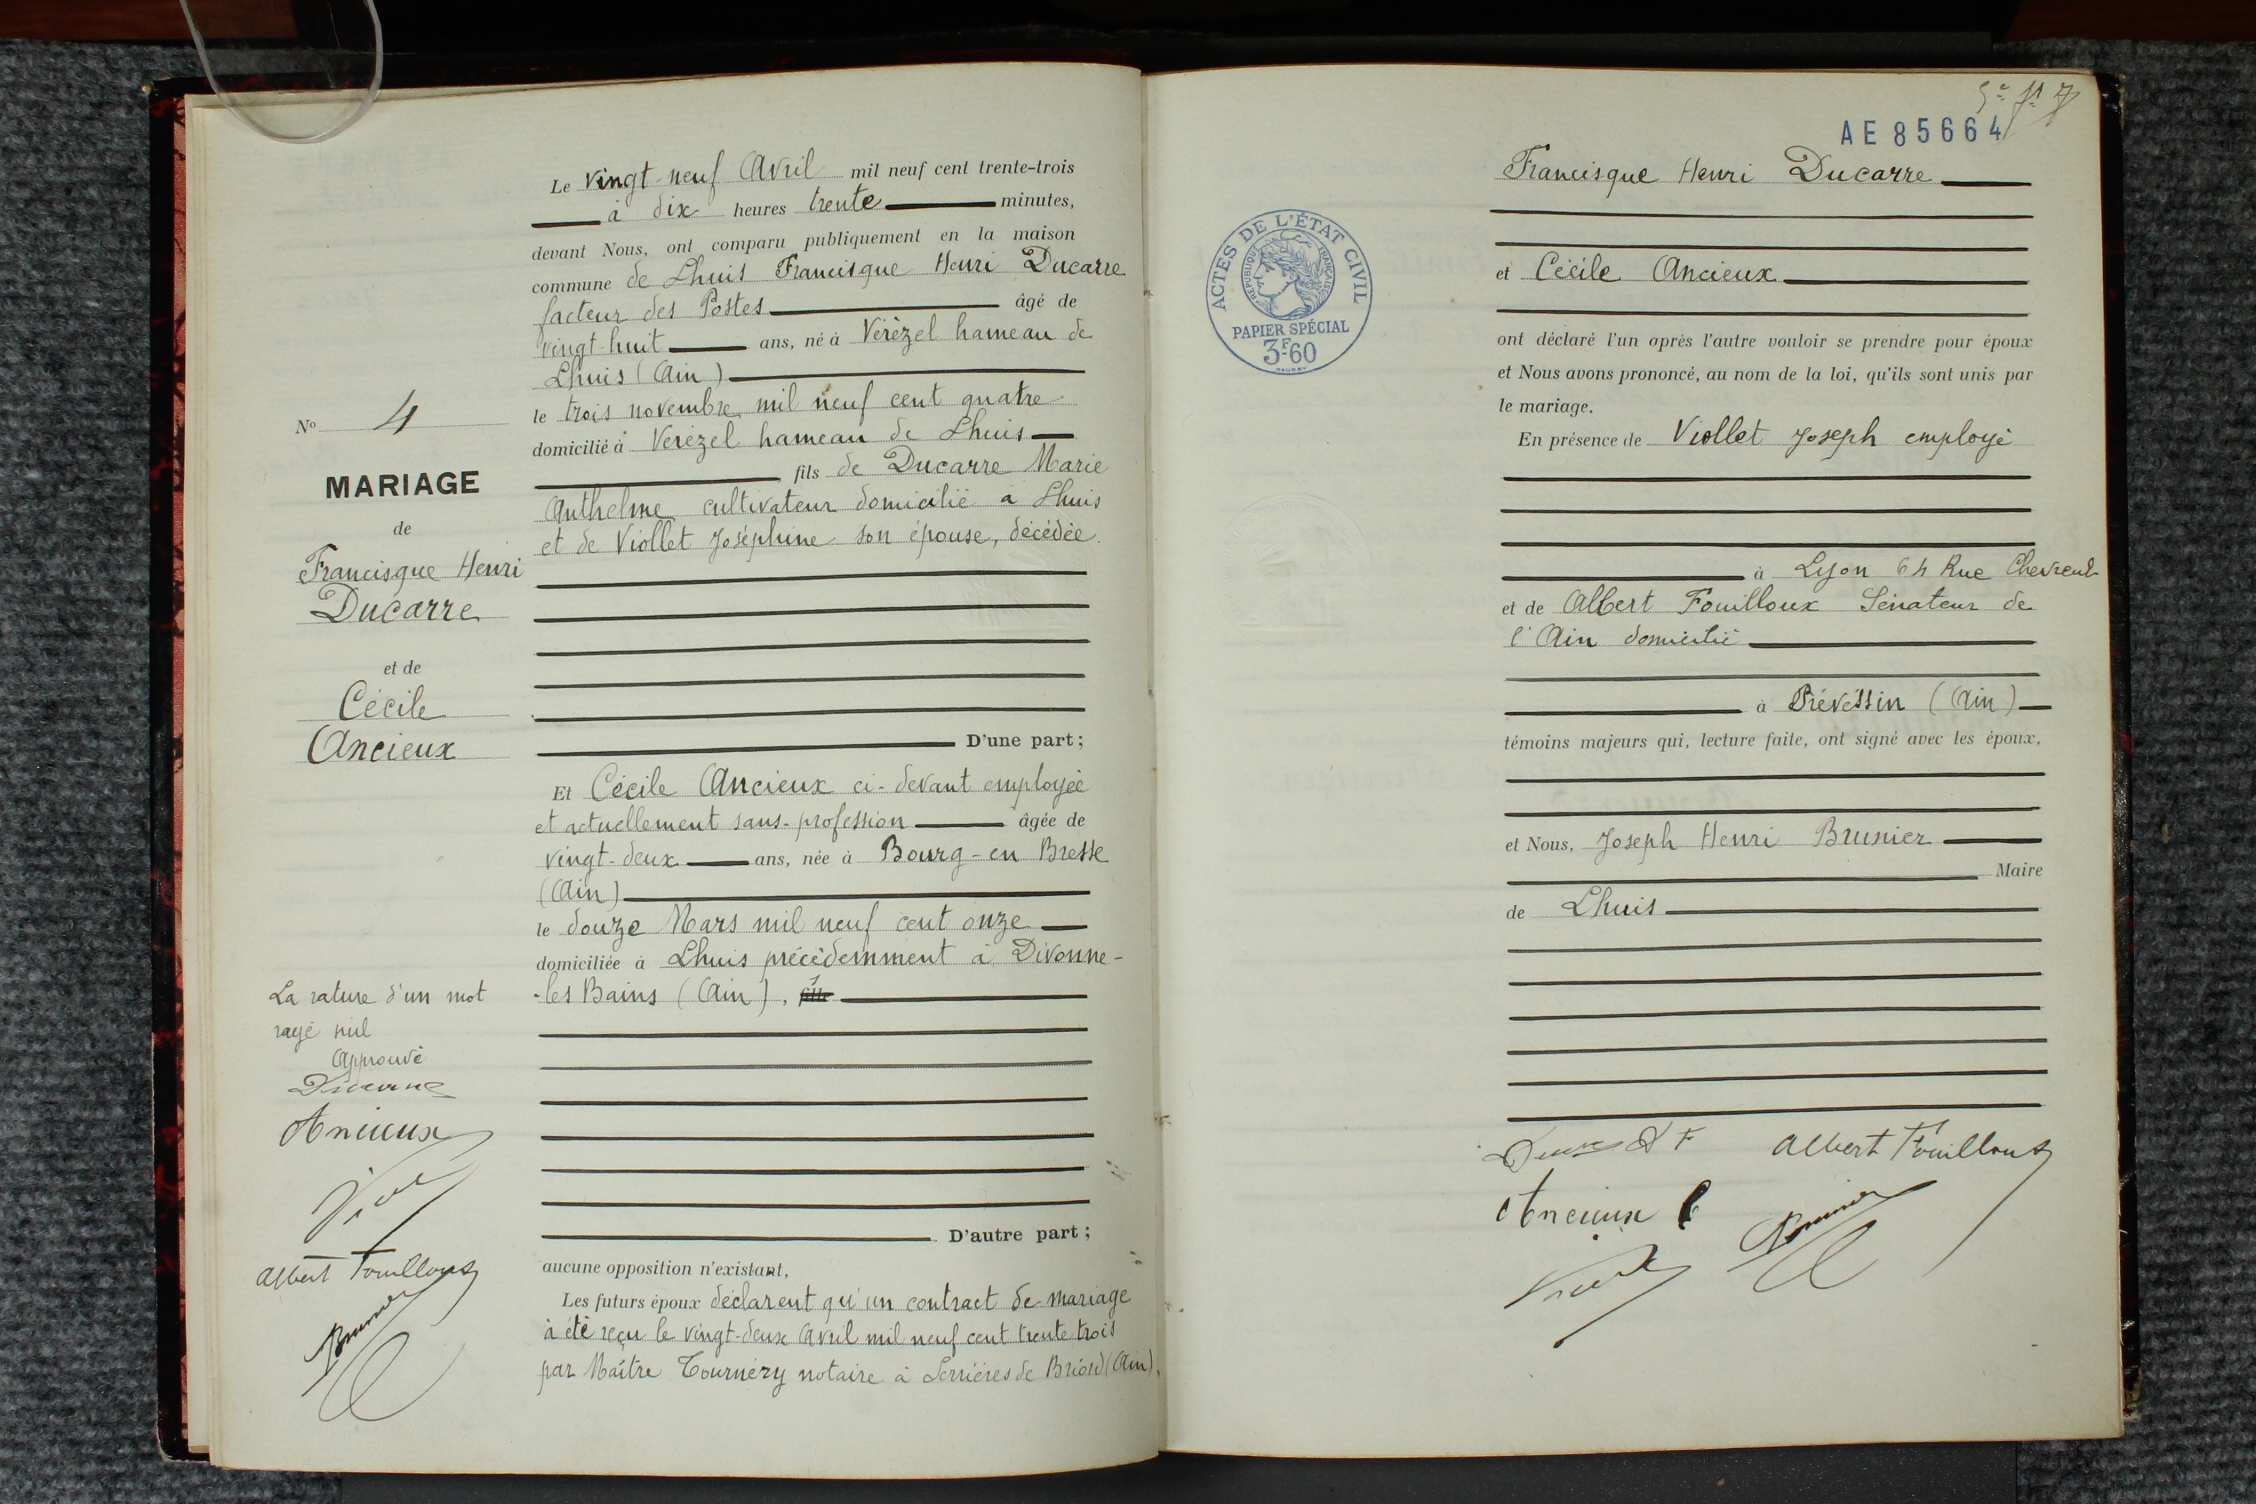 Le vingt-neuf Avril mil neuf cent trente-trois
à dix heures trente minutes,
devant Nous, ont comparu publiquement en la maison
commune de Lhuis Francisque Henri Ducarre
facteur des Postes âgé de
vingt-huit ans, né à Vérézel hameau de
Lhuis (Ain)
le trois novembre mil neuf cent quatre
domicilié à Vérézel hameau de Lhuis
fils de Ducarre Marie
Anthelme cultivateur domicilié à Lhuis
et de Viollet Joséphine son épouse, décédée.
D'une part;
Et Cécile Ancieux ci-devant employée
et actuellement sans-profession âgée de
vingt-deux ans, née à Bourg-en Bresse
(Ain)
le douze Mars mil neuf cent onze
domiciliée à Lhuis précédemment à Divonne-
-les Bains (Ain), fille
D'autre part;
aucune opposition n'existant,
Les futurs époux déclarent qu'un contract de mariage
à été reçu le vingt-deux Avril mil neuf cent trente trois
par Maître Tournéry notaire à Serrières de Briord (Ain).
No 4
MARIAGE
de
Francisque Henri
Ducarre
et de
Cécile
Ancieux
La rature d'un mot
rayé nul
Approuvé
Ducarre
Ancieux
Albert Fouilloux
Brunier
AE 85664
Francisque Henri Ducarre
et Cécile Ancieux
ont déclaré l'un après l'autre vouloir se prendre pour époux
et Nous avons prononcé, au nom de la loi, qu'ils sont unis par
le mariage.
En présence de Viollet Joseph employé
à Lyon 64 Rue Chevreul
et de Albert Fouilloux Sénateur de
l'Ain domicilié
à Prévessin (Ain)
témoins majeurs qui, lecture faite, ont signé avec les époux,
et Nous, Joseph Henri Brunier
Maire
de Lhuis
Albert Fouilloux
Ancieux C
Brunier
ACTES DE L'ÉTAT CIVIL
RÉPUBLIQUE FRANÇAISE
PAPIER SPÉCIAL
3F60